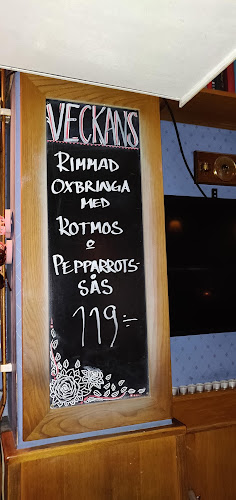 VECKANS
RIMMAD
OXBRINGA
MED
ROTMOS
o
PEPPARROTS-
SÅS
119:-